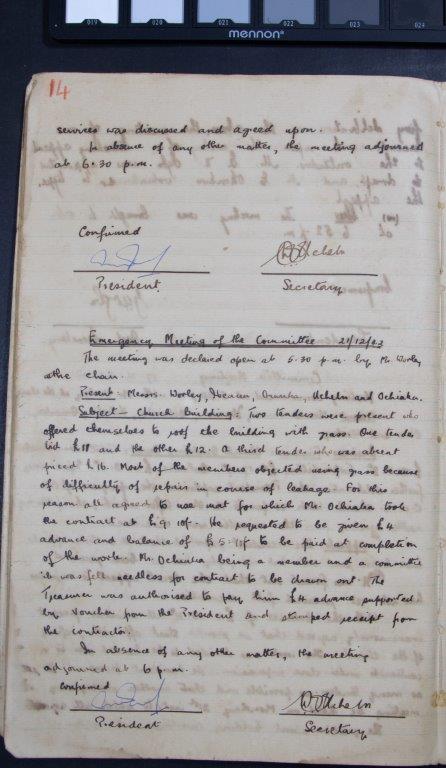 019 020 021 022 023 024
mennon
14
services was discussed and agreed upon.
In absence of any other matter, the meeting adjourned
at 6.30 p.m.
Confirmed
President Secretary
Emergency Meeting of the Committee 21/12/43
The meeting was declared open at 5.30 p.m. by Mr. Worley
at the chair.
Present: Messrs. Worley, and Ochiaka.
Subject – Church building: Two tenders were present who
offered themselves to roof the building with grass. One tender
bid £18 and the other £12. A third tender who was absent
priced £16. Most of the members objected using grass because
of difficulty of repairs in course of leakage. For this
reason all agreed to use mat for which Mr. Ochiaka took
the contract at £9.10/-. He requested to be given £4
advance and balance of £5.10/- to be paid at completion
of the work. Mr. Ochiaka being a member and a committee
it was felt needless for contract to be drawn out. The
Treasurer was authorised to pay him £4 advance supported
by Voucher from the President and stamped receipt from
the contractor.
In absence of any other matter, the meeting
adjourned at 6 p.m.
Confirmed
President Secretary